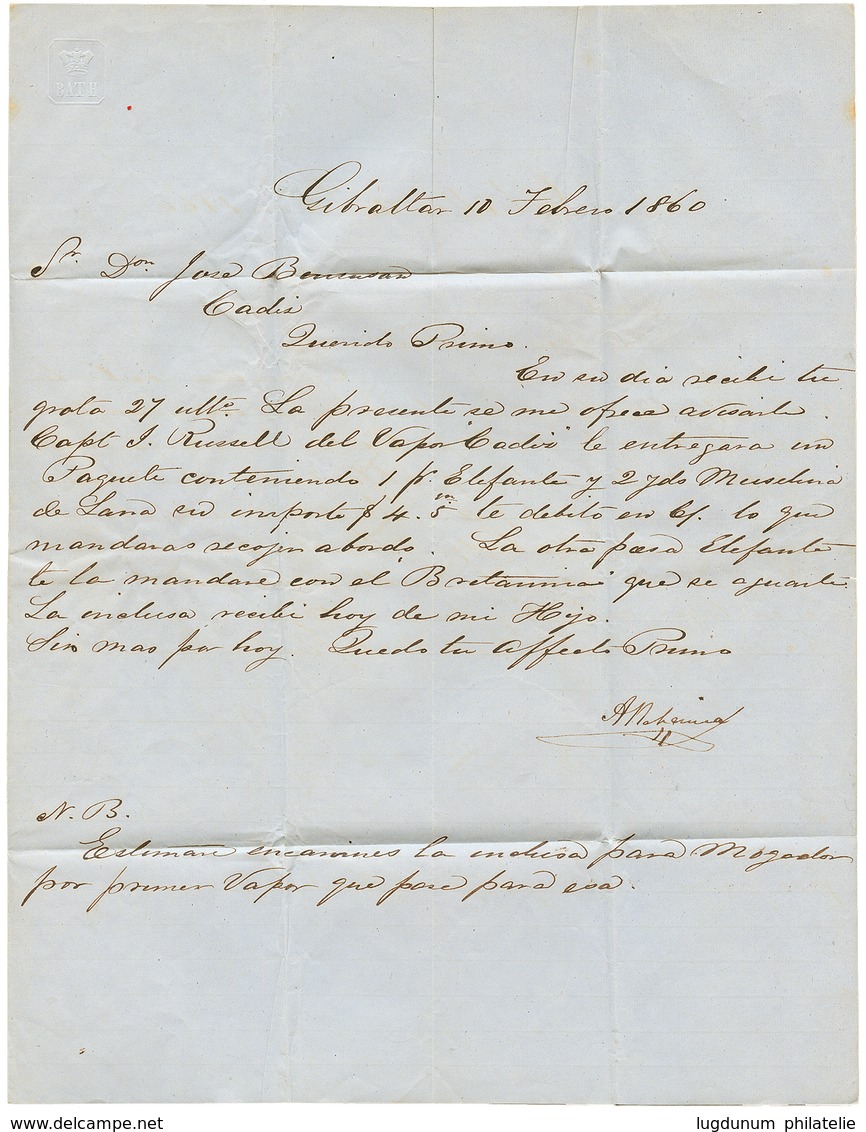 BATH
Gibraltar 10 Febrero 1860
Sr. Don José Benusan
Cadiz
Querido Primo.
En su dia recibi tu
grata 27 ulto. La presente se me ofrece avisarte
Capt J. Russell del Vapor "Cadiz" le entregara un
Paquete conteniendo 1 ps. Elefante y 2 yds Muselina
de Lana su importe $ 4. 5 te debito en C/. lo que
mandaras recojer abordo. La otra piesa Elefante
te la mandaré con el "Britannia" que se aguarda.
La inclusa recibi hoy de mi Hijo.
Sin mas por hoy. Quedo tu Affecto Primo
N. B.
Estimaré encamines la inclusa para Mogador
por primer Vapor que pase para esa.
delcampe.net
lugdunum philatelie